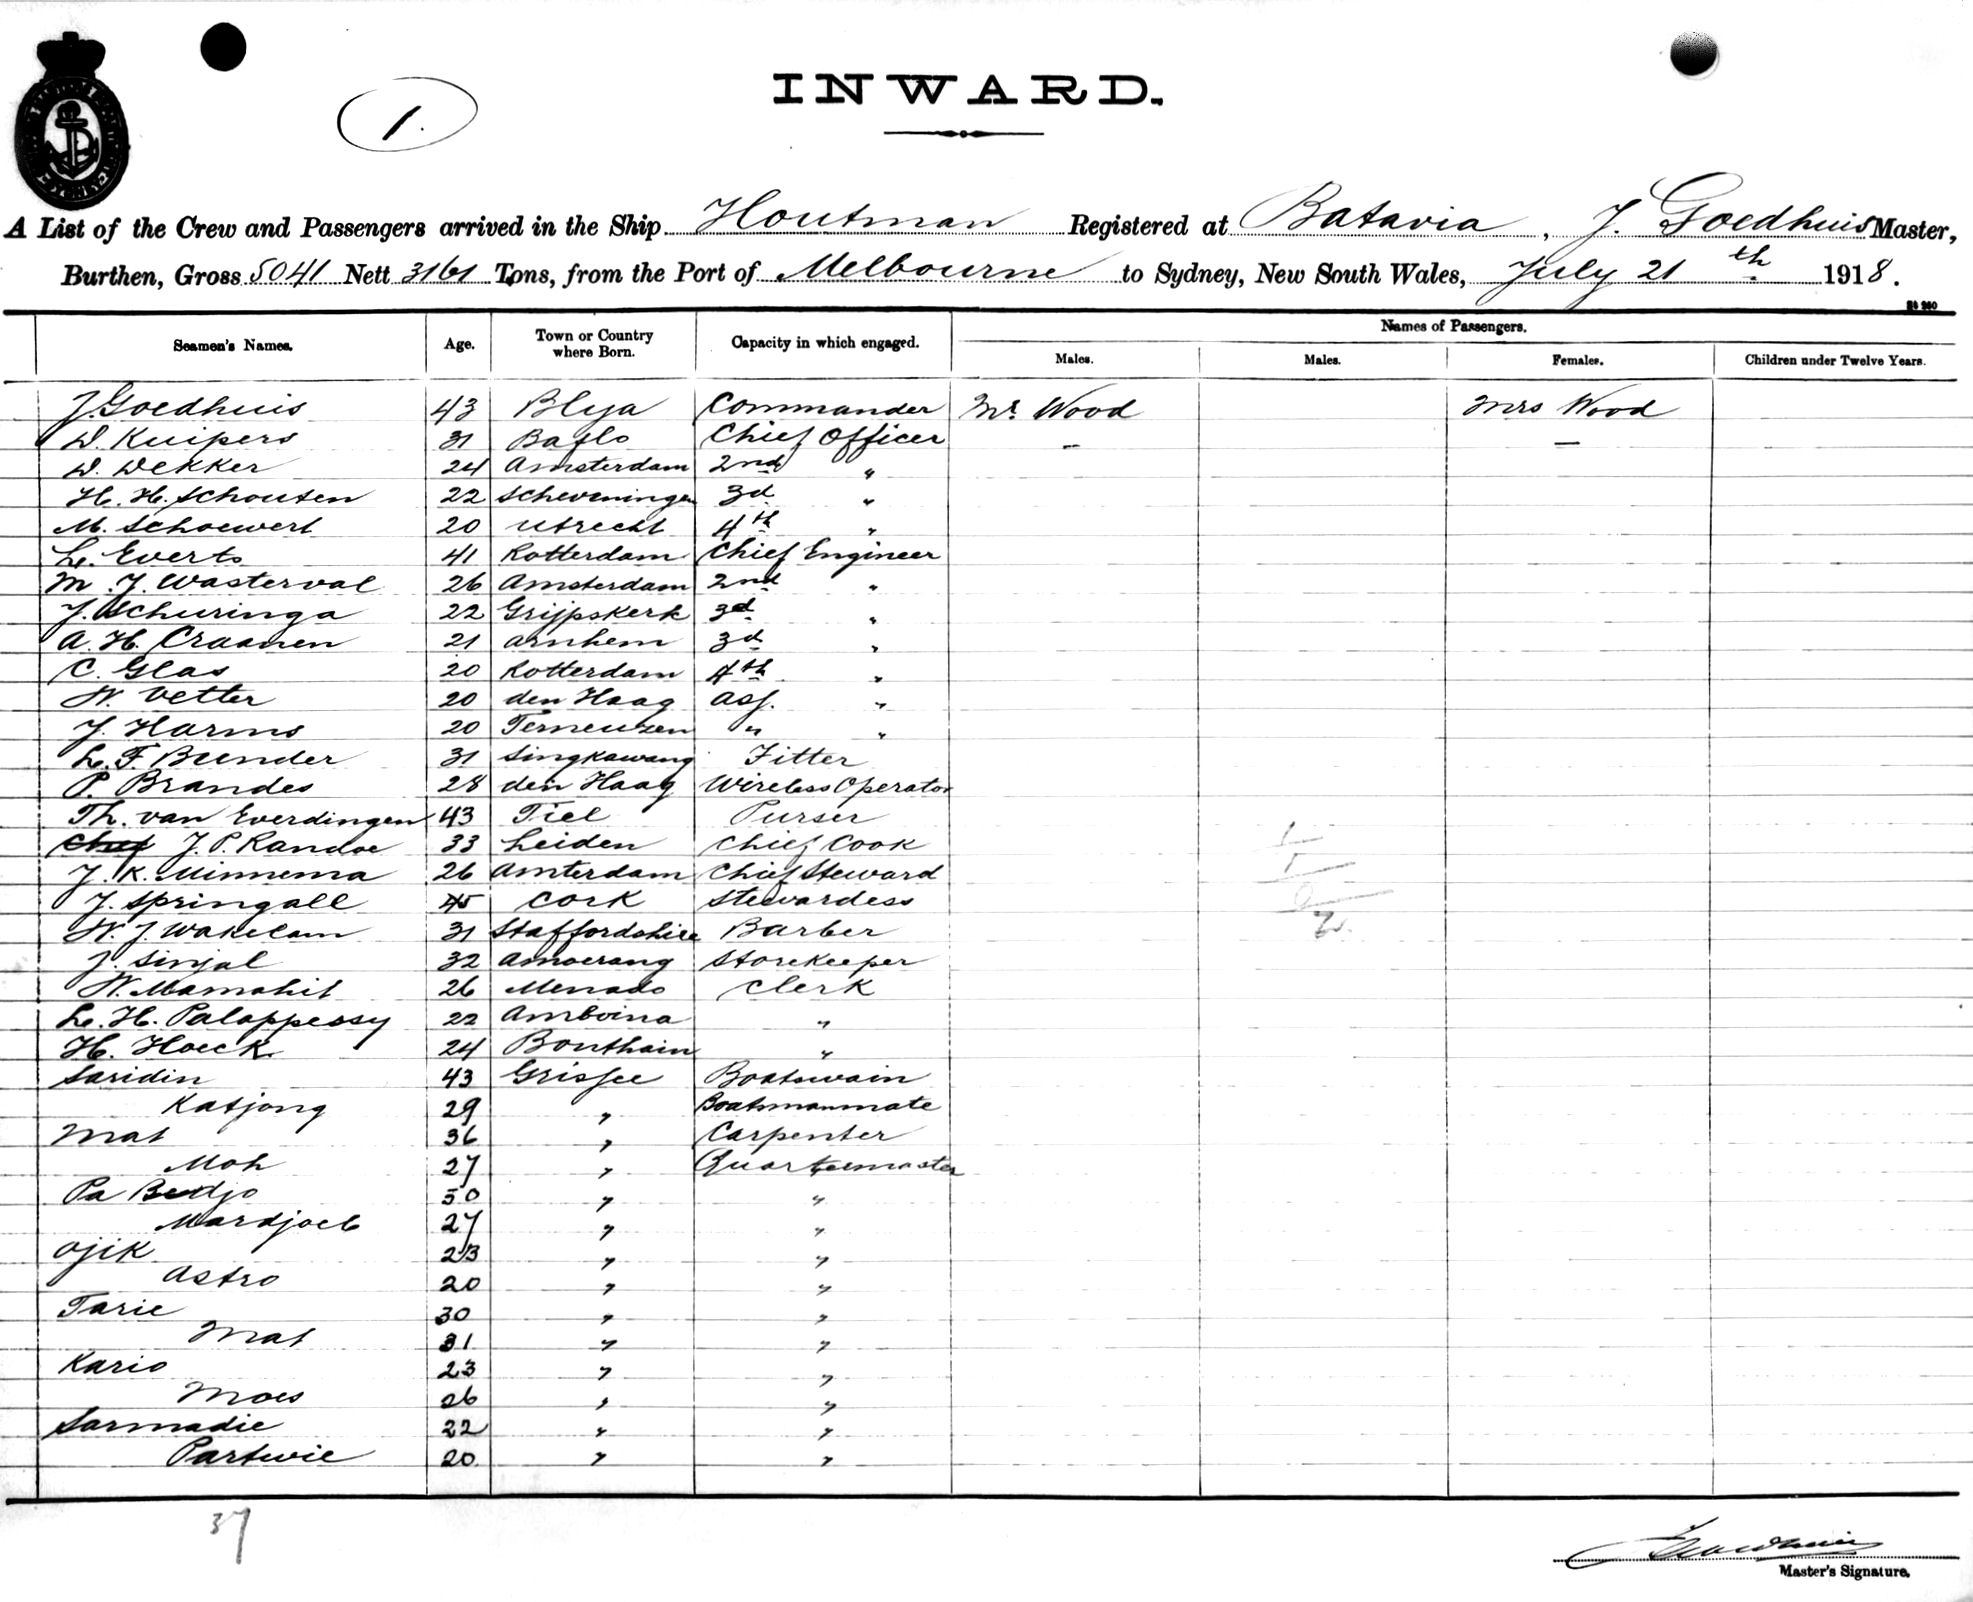 1.
INWARD.
A List of the Crew and Passengers arrived in the Ship Houtman Registered at Batavia, J. Goedhuis Master,
Burthen, Gross 5041 Nett 3161 Tons, from the Port of Melbourne to Sydney, New South Wales, July 21th 1918.
Seamen's Names. Age. Town or Country where Born. Capacity in which engaged. Names of Passengers.
Males. Males. Females. Children under Twelve Years.
J. Goedhuis 43 Blya Commander Mr. Wood Mrs Wood
D. Kuipers 31 Baflo Chief Officer
D. Dekker 24 Amsterdam 2nd "
H. H. Schouten 22 Scheveningen 3d "
M. Schoewert 20 Utrecht 4th "
L. Everts 41 Rotterdam Chief Engineer
M. J. Wasterval 26 Amsterdam 2nd "
J. Schuringa 22 Grijpskerk 3d "
A. H. Craanen 21 Arnhem 3d "
C. Glas 20 Rotterdam 4th "
W. Vetter 20 den Haag ass. "
J. Harms 20 Terneuzen " "
L. F. Bunder 31 Singkawang Fitter
P. Brandes 28 den Haag Wireless Operator
Th. van Everdingen 43 Tiel Purser
Chief J. P. Randoe 33 Leiden Chief Cook
J. K. Minnema 26 Amterdam Chief Steward
J. Springall 45 Cork Stewardess
W. J. Wakelam 31 Staffordshire Barber
J. Sinjal 32 Amoerang Storekeeper
W. Mamahit 26 Menado Clerk
L. H. Palappessy 22 Amboina "
H. Hoeck 24 Bonthain "
Saridin 43 Grissee Boatswain
Katjong 29 " Boatsmanmate
Mat 36 " Carpenter
Moh 27 " Quartermaster
Pa Bedjo 50 " "
Mardjoeb 27 " "
Ojik 23 " "
Astro 20 " "
Tarie 30 " "
Mat 31 " "
Kario 23 " "
Moes 26 " "
Sarmadie 22 " "
Partwie 20 " "
37
Master's Signature.